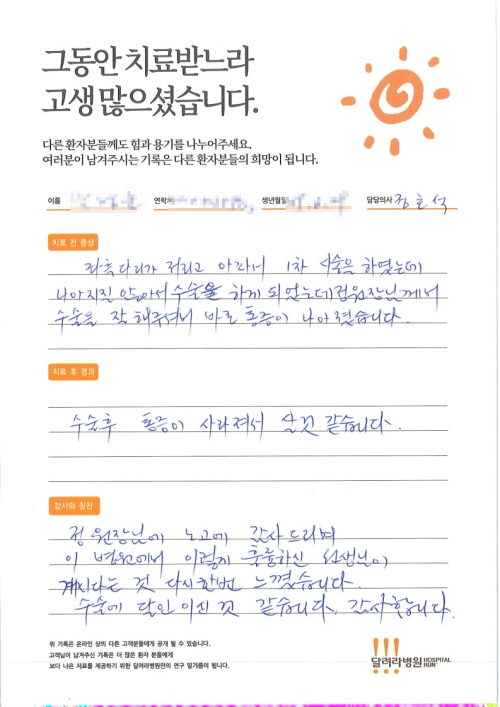 그동안 치료받느라
고생 많으셨습니다.
다른 환자분들께도 힘과 용기를 나누어주세요.
여러분이 남겨주시는 기록은 다른 환자분들의 희망이 됩니다.
이름 연락처 생년월일 담당의사 정호석
치료 전 증상
좌측다리가 저리고 아파서 1차 시술을 하였는데
나아지질 않아서 수술을 하게 되었는데 정원장님께서
수술을 잘 해주셔서 바로 통증이 나아졌습니다.
치료 후 경과
수술후 통증이 사라져서 살것 같습니다.
감사와 칭찬
정원장님에 노고에 감사드리며
이 병원에서 이렇게 훌륭하신 선생님이
계시다는 것 다시한번 느꼈습니다.
수술에 달인이신 것 같습니다. 감사합니다.
위 기록은 온라인 상의 다른 고객분들에게 공개 될 수 있습니다.
고객님이 남겨주신 기록은 더 많은 환자 분들에게
보다 나은 치료를 제공하기 위한 달려라병원만의 연구 밑거름이 됩니다.
달려라병원 HOSPITAL RUN